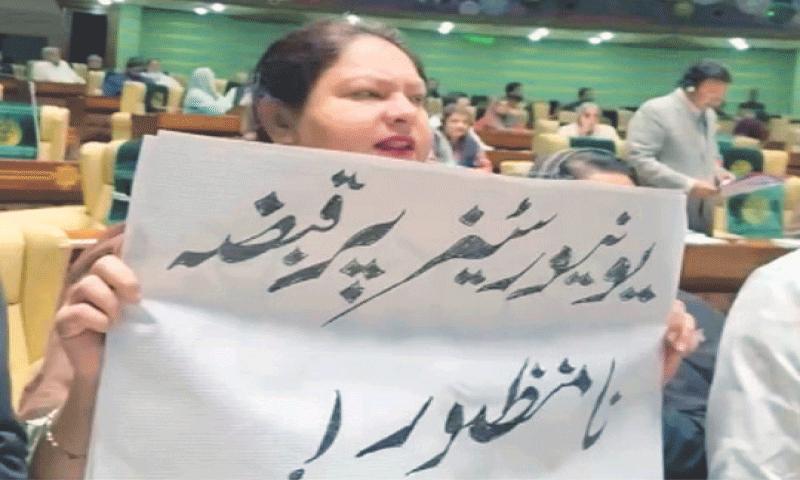 یونیورسٹیز پر قبضہ
نامنظور !